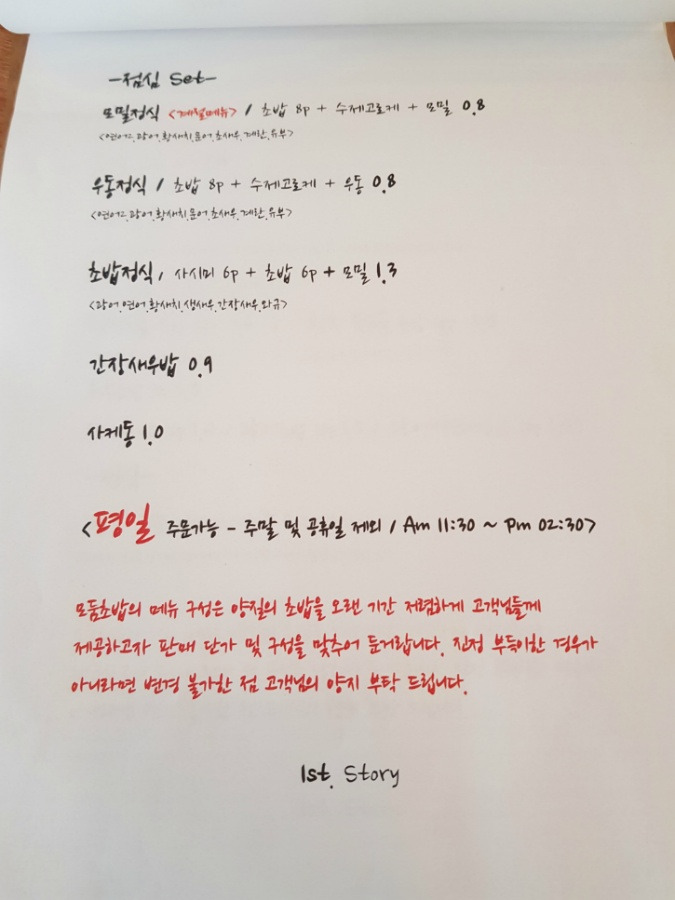 -점심 Set-
모밀정식 <계절메뉴> / 초밥 8p + 수제고로케 + 모밀 0.8
<연어2.광어.황새치.문어.초새우.계란.유부>
우동정식 / 초밥 8p + 수제고로케 + 우동 0.8
<연어2.광어.황새치.문어.초새우.계란.유부>
초밥정식 / 사시미 6p + 초밥 6p + 모밀 1.3
<광어.연어.황새치.생새우.간장새우.와규>
간장새우밥 0.9
사케동 1.0
<평일 주문가능 - 주말 및 공휴일 제외 / Am 11:30 ~ Pm 02:30>
모둠초밥의 메뉴 구성은 양질의 초밥을 오랜 기간 저렴하게 고객님들께
제공하고자 판매 단가 및 구성을 맞추어 둔거랍니다. 진정 부득이한 경우가
아니라면 변경 불가한 점 고객님의 양지 부탁 드립니다.
1st. Story